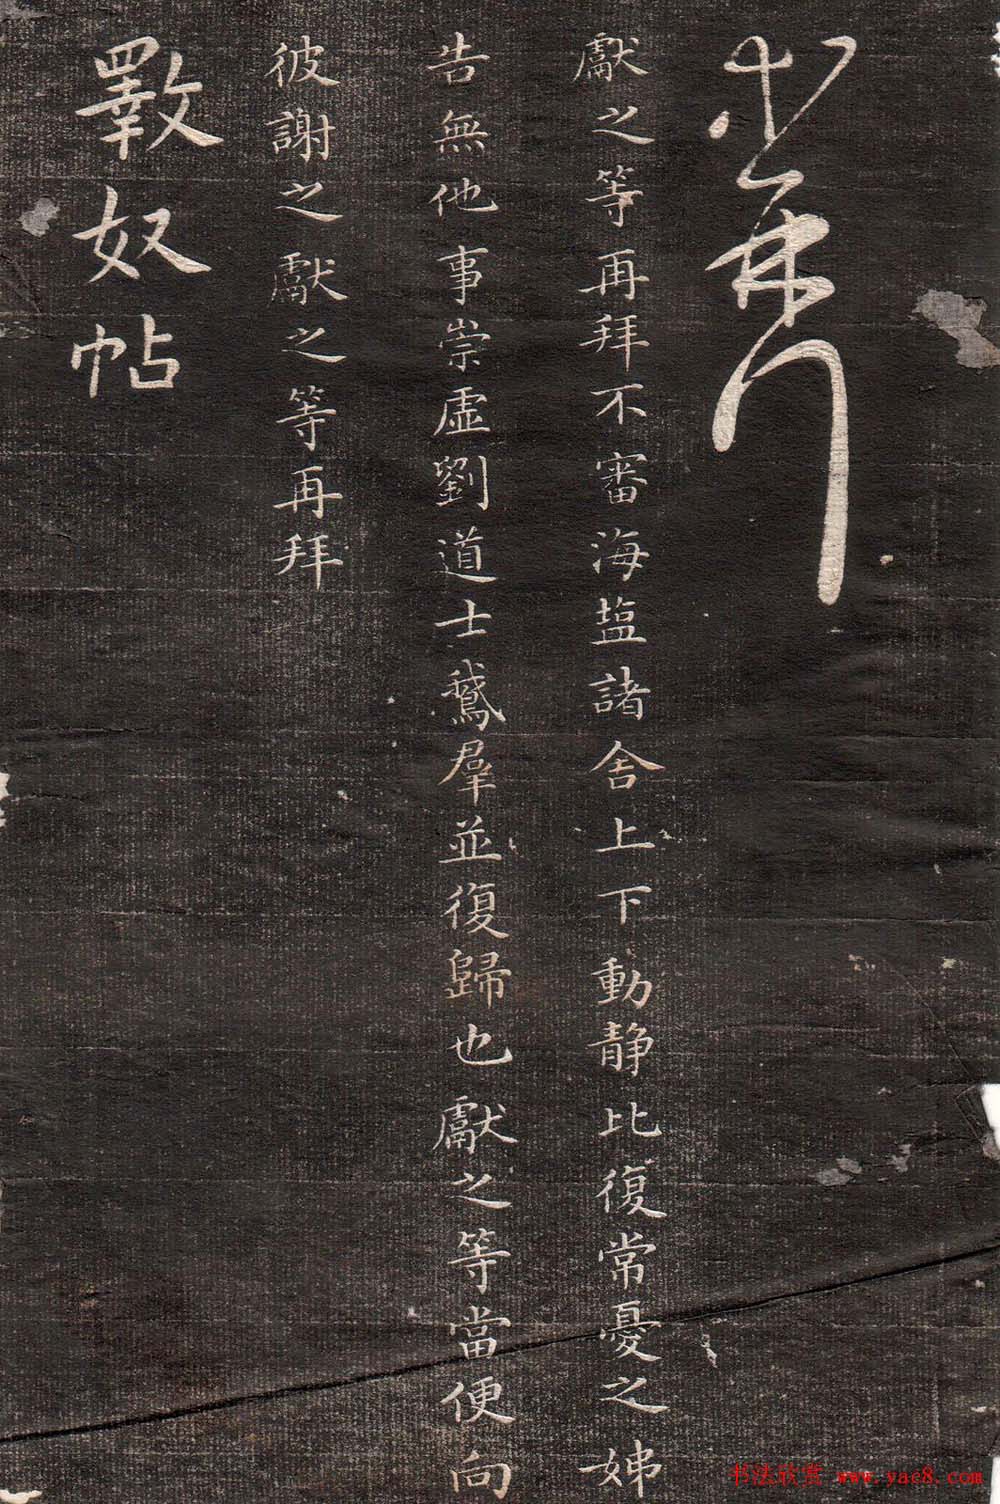 獻之等再拜不審海塩諸舍上下動静比復常憂之姊
告無他事崇虛劉道士鵝羣並復歸也獻之等當便向
彼謝之獻之等再拜
斁奴帖
书法欣赏 www.yac8.com